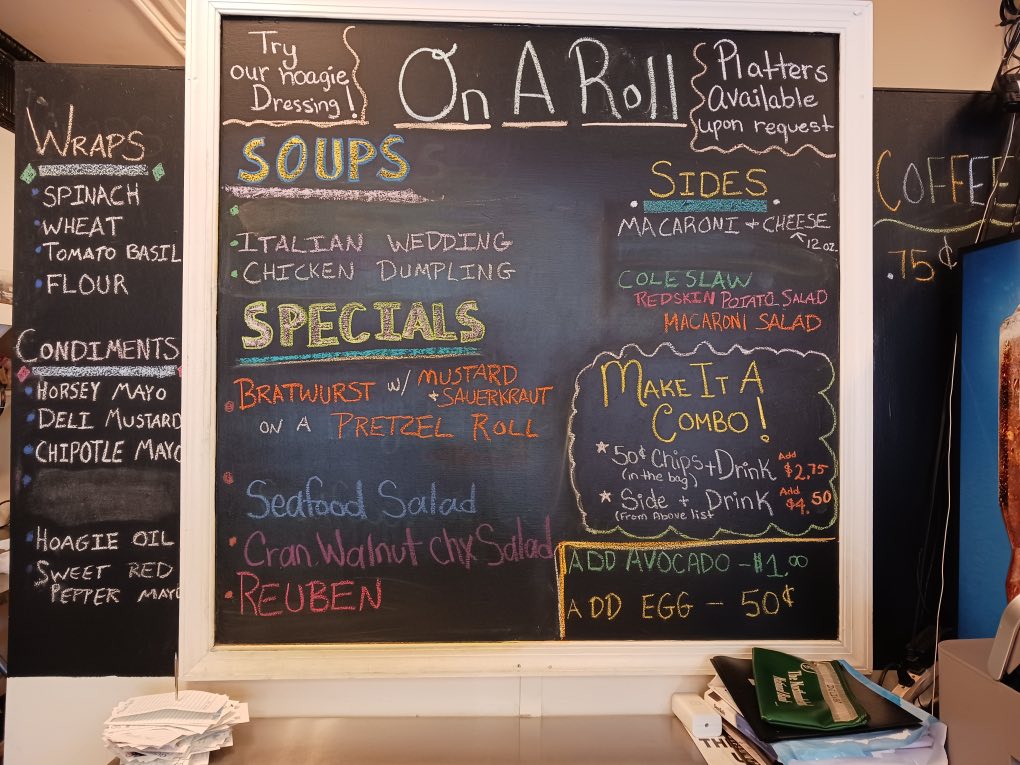 WRAPS
SPINACH
WHEAT
TOMATO BASIL
FLOUR
CONDIMENTS
HORSEY MAYO
DELI MUSTARD
CHIPOTLE MAYO
HOAGIE OIL
SWEET RED
PEPPER MAYO
Try
our hoagie
Dressing!
On A Roll
Platters
Available
upon request
SOUPS
ITALIAN WEDDING
CHICKEN DUMPLING
SPECIALS
BRATWURST w/ MUSTARD
+ SAUERKRAUT
ON A PRETZEL ROLL
Seafood Salad
Cran Walnut chx Salad
REUBEN
SIDES
MACARONI + CHEESE
12 oz.
COLESLAW
REDSKIN POTATO SALAD
MACARONI SALAD
MAKE IT A
COMBO!
50¢ Chips + Drink Add $2.75
(in the bag)
Side + Drink Add $4.50
(From Above list
ADD AVOCADO - $1.00
ADD EGG - 50¢
COFFEE
.75¢